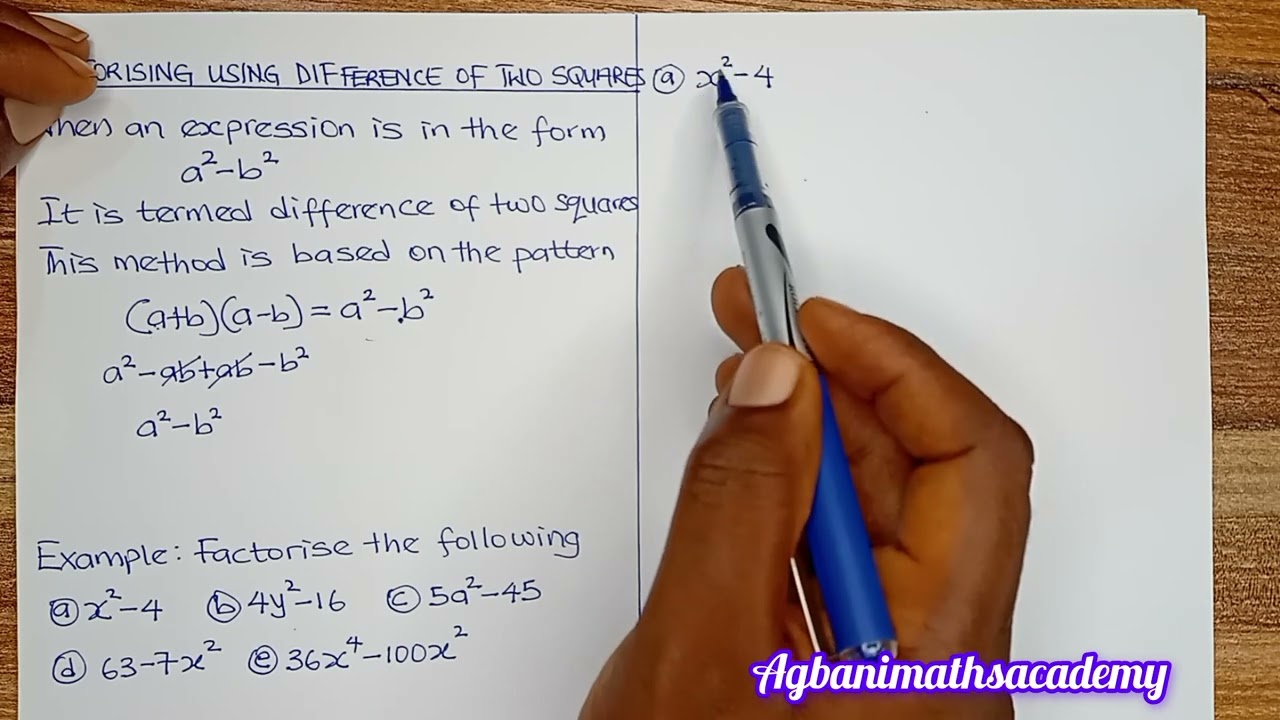 ORISING USING DIFFERENCE OF TWO SQUARES
When an expression is in the form
a²-b²
It is termed difference of two squares
This method is based on the pattern
(a+b)(a-b) = a²-b²
a²-ab+ab-b²
a²-b²
Example: Factorise the following
(a) x²-4 (b) 4y²-16 (c) 5a²-45
(d) 63-7x² (e) 36x⁴-100x²
(a) x²-4
Agbanimathsacademy